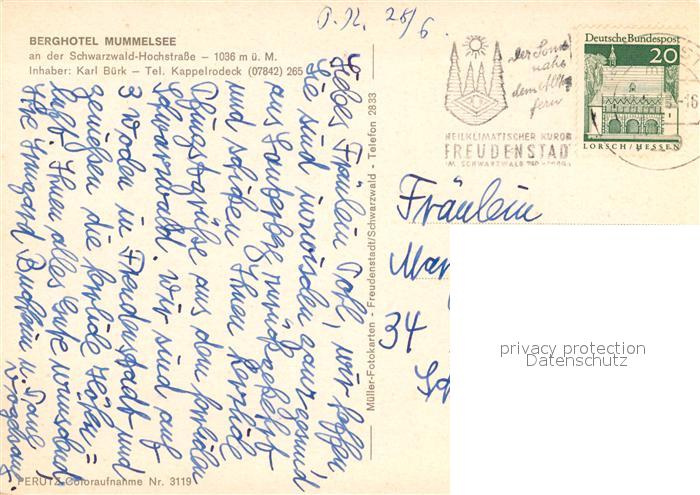 P.K. 28/6.
BERGHOTEL MUMMELSEE
an der Schwarzwald-Hochstraße – 1036 m ü. M.
Inhaber: Karl Bürk – Tel. Kappelrodeck (07842) 265
Liebes Fräulein Doll, wir hoffen
Sie sind inzwischen ganz gesund
aus Lauterberg zurückgekehrt
und schicken Ihnen herzliche
Pfingstgrüße aus dem herrlichen
Schwarzwald. Wir sind auf
3 Wochen in Freudenstadt und
genießen die herrliche Höhen=
luft. Ihnen alles Gute wünschend
Ihre Irmgard Buchheim u. Paul
PERUTZ-Coloraufnahme Nr. 3119
Müller-Fotokarten - Freudenstadt/Schwarzwald - Telefon 2833
der Sonne
nahe
dem Alltag
fern
HEILKLIMATISCHER KURORT
FREUDENSTADT
IM SCHWARZWALD
Deutsche Bundespost
20
LORSCH/HESSEN
-16
Fräulein
34
privacy protection
Datenschutz